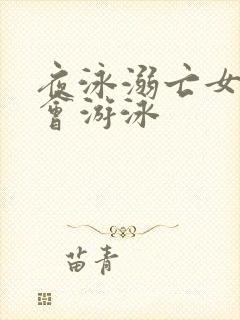 夜泳溺亡女
會游泳
苗青